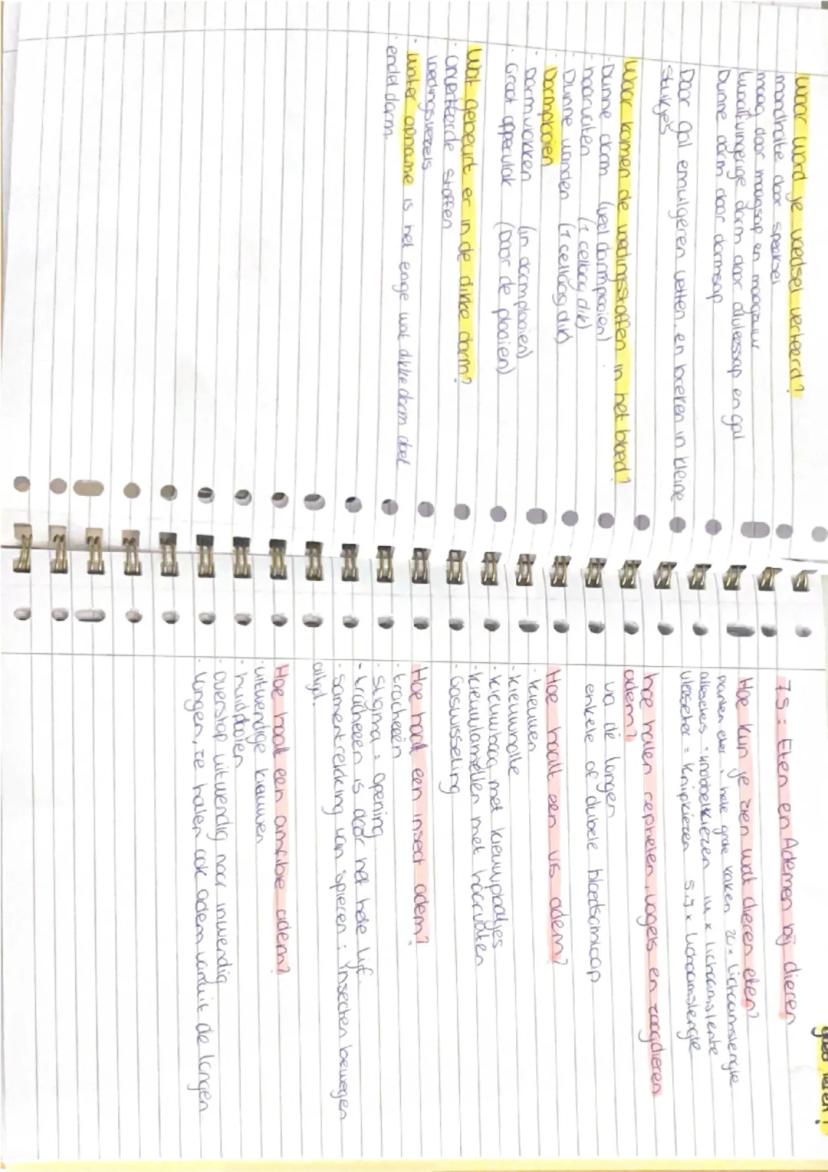 Waar word je voedsel verteerd?
mondholte door speeksel
maag door maagsap en maagzuur
twaalfvingerige darm door alvleessap en gal
Dunne darm door darmsap
Door gal emulgeren vetten, en breken in kleine
stukjes
Waar komen de voedingsstoffen in het bloed?
Dunne darm (veel darmplooien)
haarvaten (1 cellaag dik)
Dunne wanden (1 cellaag dik)
Darmplooien
Darmvlokken (in darmplooien)
Groot oppervlak (Door de plooien)
Wat gebeurt er in de dikke darm?
· onverteerde stoffen
voedingsvezels
· water opname is het enige wat dikke darm doet
· endeldarm.
goed leren!
7.5: Eten en Ademen bij dieren
Hoe kun je zien wat dieren eten?
planten eter: hele grote kaken 20x Lichaamslengte
alleseters: knobbelkiezen 14x Lichaamslente
vleeseter = knipkiezen 5,3x Lichaamslengte
hoe halen reptielen, vogels en zoogdieren
adem?
via de longen
enkele of dubele bloedsomloop
Hoe haalt een vis adem?
· kieuwen
· kieuwholte
· kieuwboog met kieuwplaatjes
· kieuwlamellen met haarvaten
· Gaswisseling
Hoe haalt een insect adem?
· tracheeën
· stigma = opening
· tracheeën is door het hele lijf.
· Samentrekking van spieren: Insecten bewegen
altijd.
Hoe haalt een amfibie adem?
· uitwendige kieuwen
· huidplooien
· overstap uitwendig naar inwendig
· longen, ze halen ook adem vanuit de longen